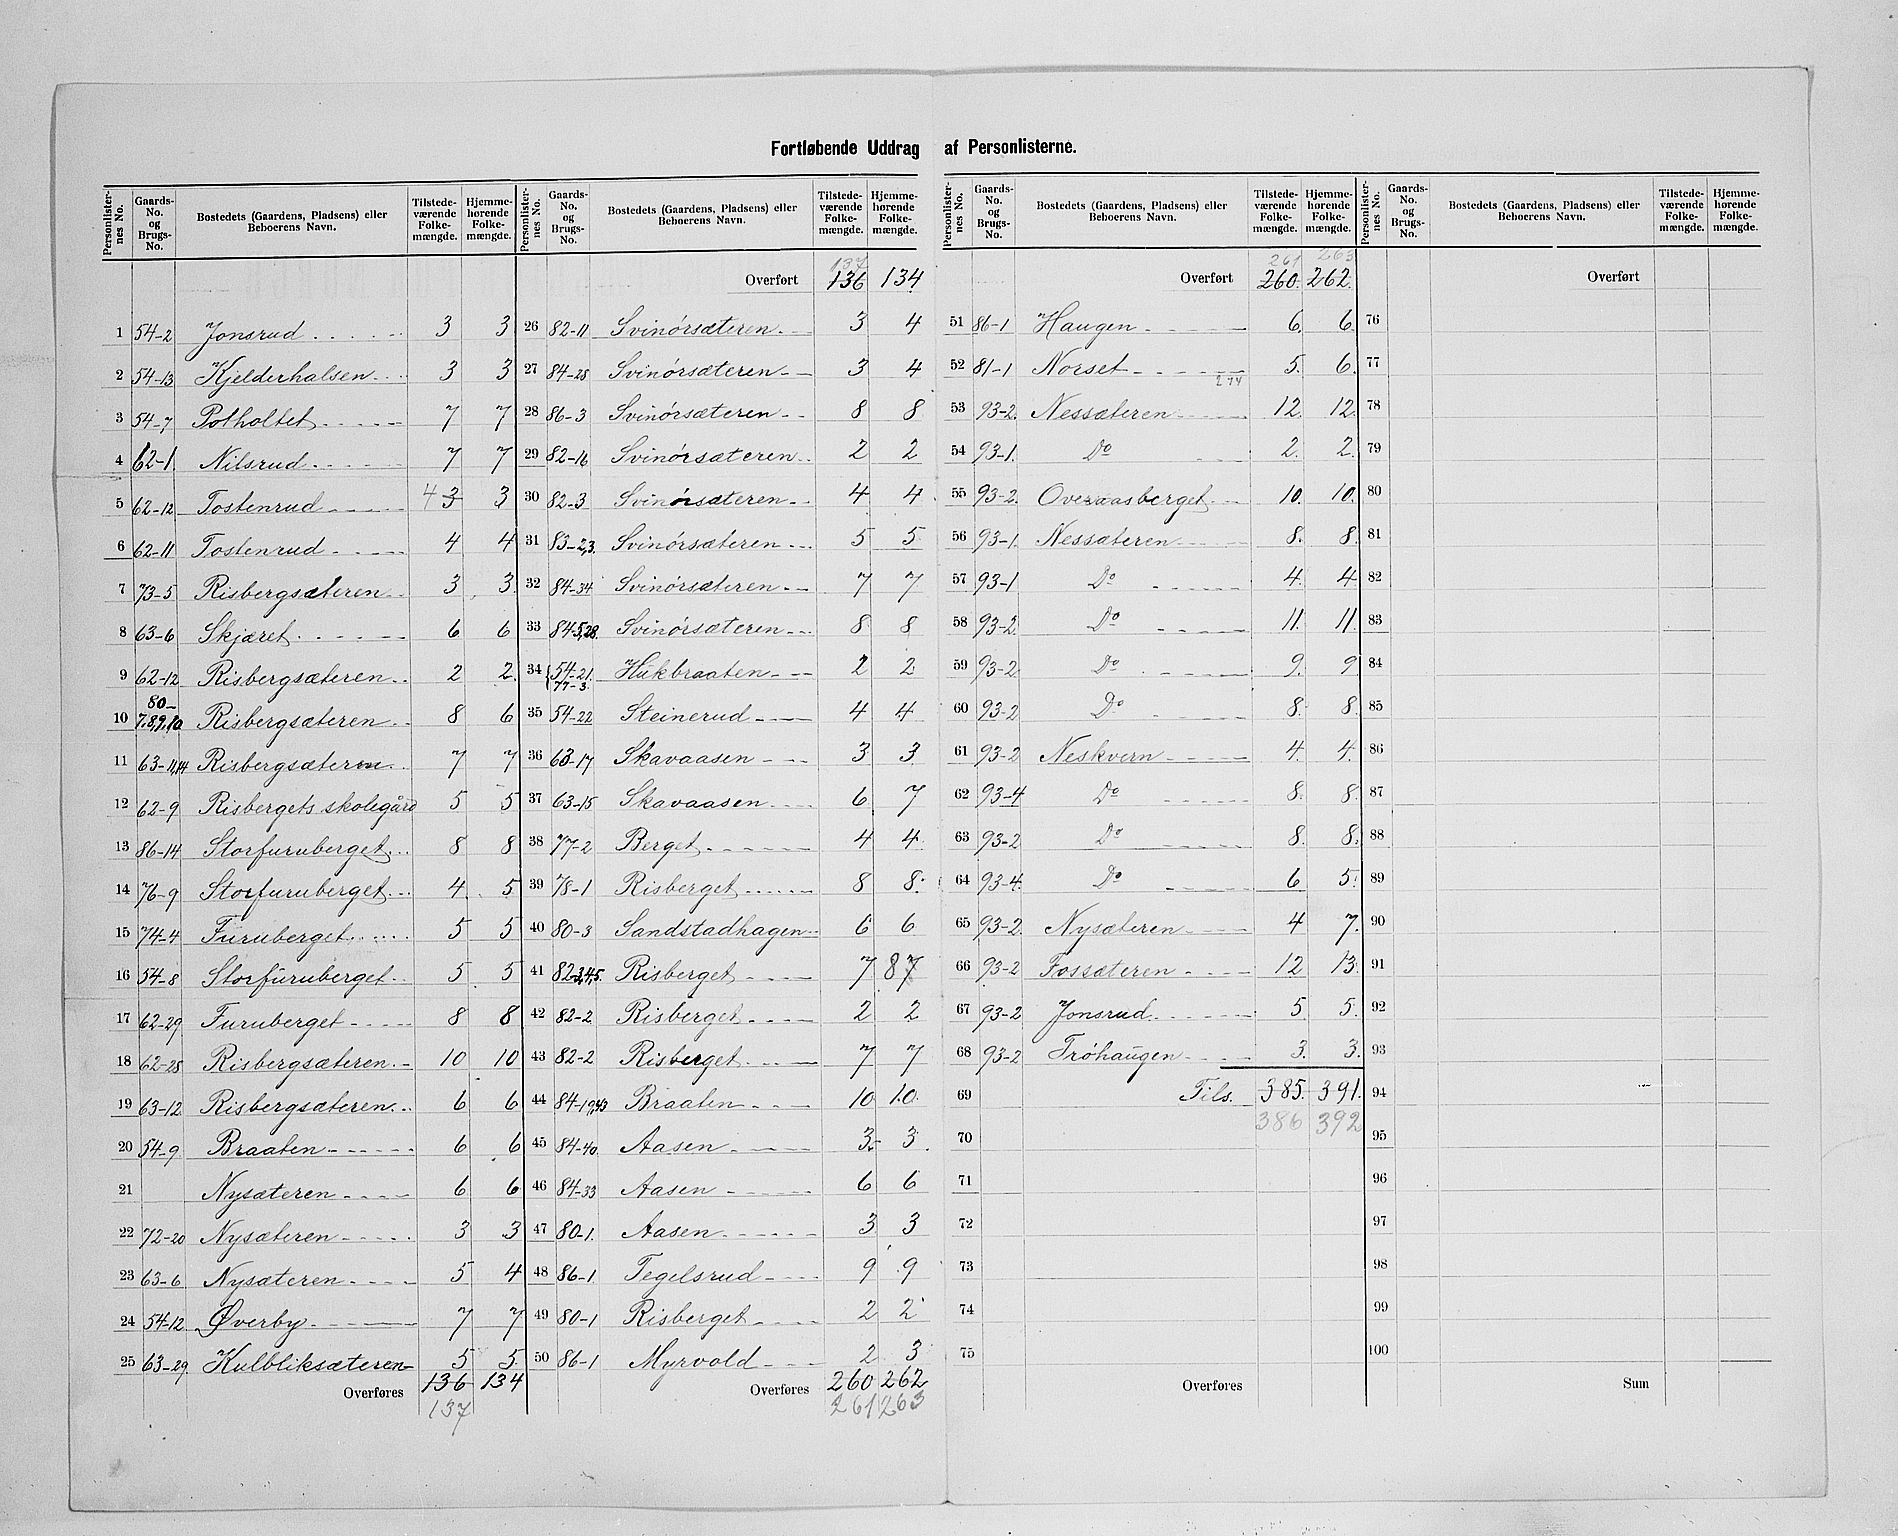 Fortløbende Uddrag af Personlisterne.
Personlister-nes No. | Gaards-No. og Brugs-No. | Bostedets (Gaardens, Pladsens) eller Beboerens Navn. | Tilstede-værende Folke-mængde. | Hjemme-hørende Folke-mængde.
1 54-2 Jonsrud 3 3
2 54-13 Kjelderhalsen 3 3
3 54-7 Potholtet 7 7
4 62-1 Nilsrud 7 7
5 62-12 Tostenrud 4 3 3
6 62-11 Tostenrud 4 4
7 73-5 Risbergsæteren 3 3
8 63-6 Skjæret 6 6
9 62-12 Risbergsæteren 2 2
10 80-7,8,9,10 Risbergsæteren 8 6
11 63-11,14 Risbergsæteren 7 7
12 62-9 Risbergets skolegård 5 5
13 86-14 Storfuruberget 8 8
14 76-9 Storfuruberget 4 5
15 74-4 Furuberget 5 5
16 54-8 Storfuruberget 5 5
17 62-29 Furuberget 8 8
18 62-28 Risbergsæteren 10 10
19 63-12 Risbergsæteren 6 6
20 54-9 Braaten 6 6
21 Nysæteren 6 6
22 72-20 Nysæteren 3 3
23 63-6 Nysæteren 5 4
24 54-12 Øverby 7 7
25 63-29 Kulbliksæteren 5 5
Overføres 136 134
137
Personlister-nes No. | Gaards-No. og Brugs-No. | Bostedets (Gaardens, Pladsens) eller Beboerens Navn. | Tilstede-værende Folke-mængde. | Hjemme-hørende Folke-mængde.
137
Overført 136 134
26 82-11 Svinörsæteren 3 4
27 84-28 Svinörsæteren 3 4
28 86-3 Svinörsæteren 8 8
29 82-16 Svinörsæteren 2 2
30 82-3 Svinörsæteren 4 4
31 83-2,3 Svinörsæteren 5 5
32 84-34 Svinörsæteren 7 7
33 84-5,28 Svinörsæteren 8 8
34 54-21 77-3 Hukbraaten 2 2
35 54-22 Steinerud 4 4
36 63-17 Skavaasen 3 3
37 63-15 Skavaasen 6 7
38 77-2 Berget 4 4
39 78-1 Risberget 8 8
40 80-3 Sandstadhagen 6 6
41 82-3,4,5 Risberget 7 8 7
42 82-2 Risberget 2 2
43 82-2 Risberget 7 7
44 84-19,43 Braaten 10 10
45 84-40 Aasen 3 3
46 84-33 Aasen 6 6
47 80-1 Aasen 3 3
48 86-1 Tegelsrud 9 9
49 80-1 Risberget 2 2
50 86-1 Myrvold 2 3
Overføres 260 262
261 263
Personlister-nes No. | Gaards-No. og Brugs-No. | Bostedets (Gaardens, Pladsens) eller Beboerens Navn. | Tilstede-værende Folke-mængde. | Hjemme-hørende Folke-mængde.
261 263
Overført 260 262
51 86-1 Haugen 6 6
52 81-1 Norset 5 6
274
53 93-2 Nessæteren 12 12
54 93-1 Do 2 2
55 93-2 Overaasberget 10 10
56 93-1 Nessæteren 8 8
57 93-1 Do 4 4
58 93-2 Do 11 11
59 93-2 Do 9 9
60 93-2 Do 8 8
61 93-2 Neskvern 4 4
62 93-4 Do 8 8
63 93-2 Do 8 8
64 93-4 Do 6 5
65 93-2 Nysæteren 4 7
66 93-2 Fossæteren 12 13
67 93-2 Jonsrud 5 5
68 93-2 Tröhaugen 3 3
69 Tils. 385 391
386 392
70
71
72
73
74
75
Overføres
Personlister-nes No. | Gaards-No. og Brugs-No. | Bostedets (Gaardens, Pladsens) eller Beboerens Navn. | Tilstede-værende Folke-mængde. | Hjemme-hørende Folke-mængde.
Overført
76
77
78
79
80
81
82
83
84
85
86
87
88
89
90
91
92
93
94
95
96
97
98
99
100
Sum